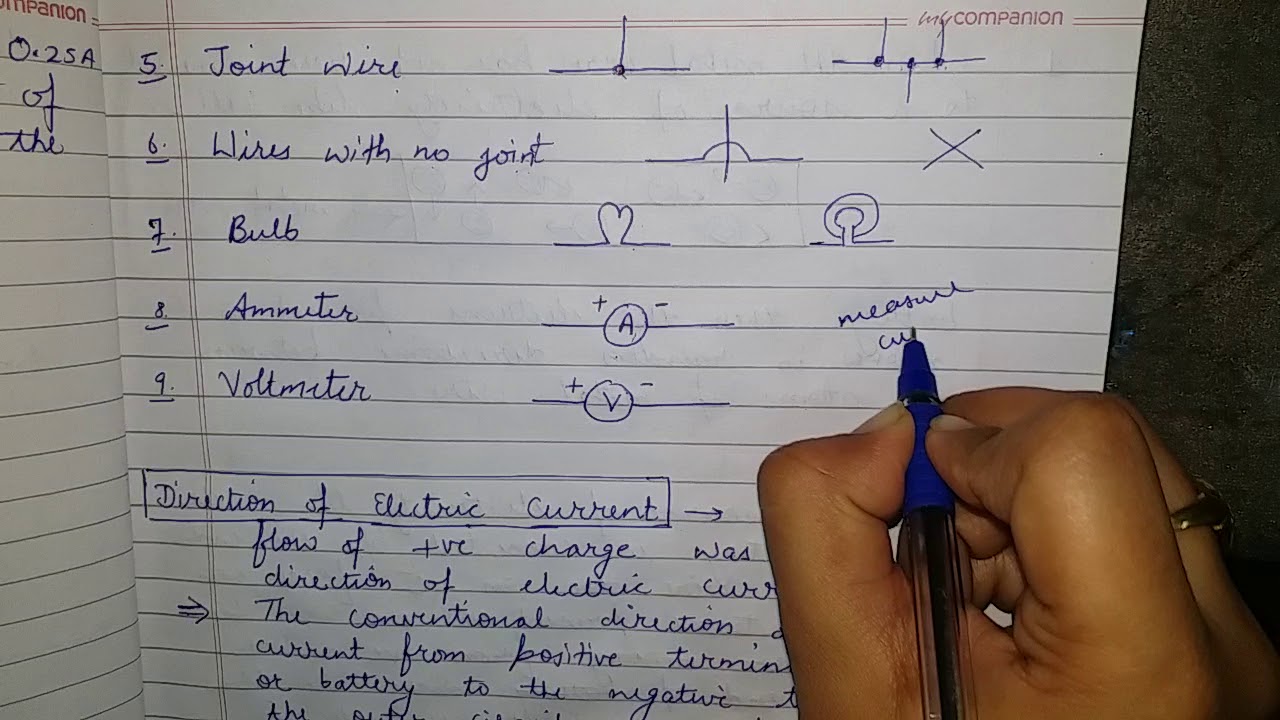 mpanion
my companion
0.25A
of
the
5. Joint wire
6. Wires with no joint
7. Bulb
8. Ammeter + A - measure
cu
9. Voltmeter + V -
Direction of Electric Current →
flow of +ve charge was
direction of electric curr
⇒ The conventional direction
current from positive termin
or battery to the negative t
the